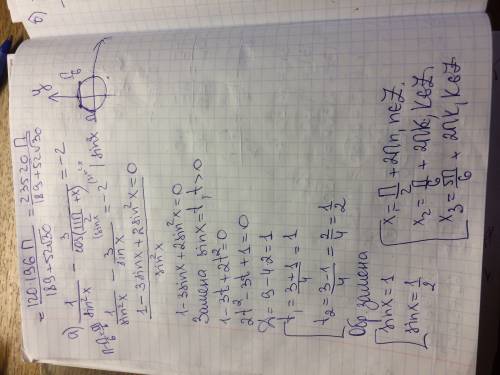 б)
= 120·196 П / 189+52√30 = 23520 П / 189+52√30
а) 1/sin²x − 3/cos(11П/2 + x) = −2
1/sin²x − 3/sinx = −2 | sinx
1−3sinx+2sin²x/sin²x = 0
1−3sinx+2sin²x=0
Замена sinx=t, t>0
1−3t+2t²=0
2t²−3t+1=0
Д=9−4·2=1
t₁=3+1/4=1
t₂=3−1/4=2/4=1/2
Обр замена
sinx=1
sinx=1/2
x₁=П/2+2Пn, n∈Z.
x₂=П/6+2Пk, k∈Z
x₃=5П/6+2Пk, k∈Z
y